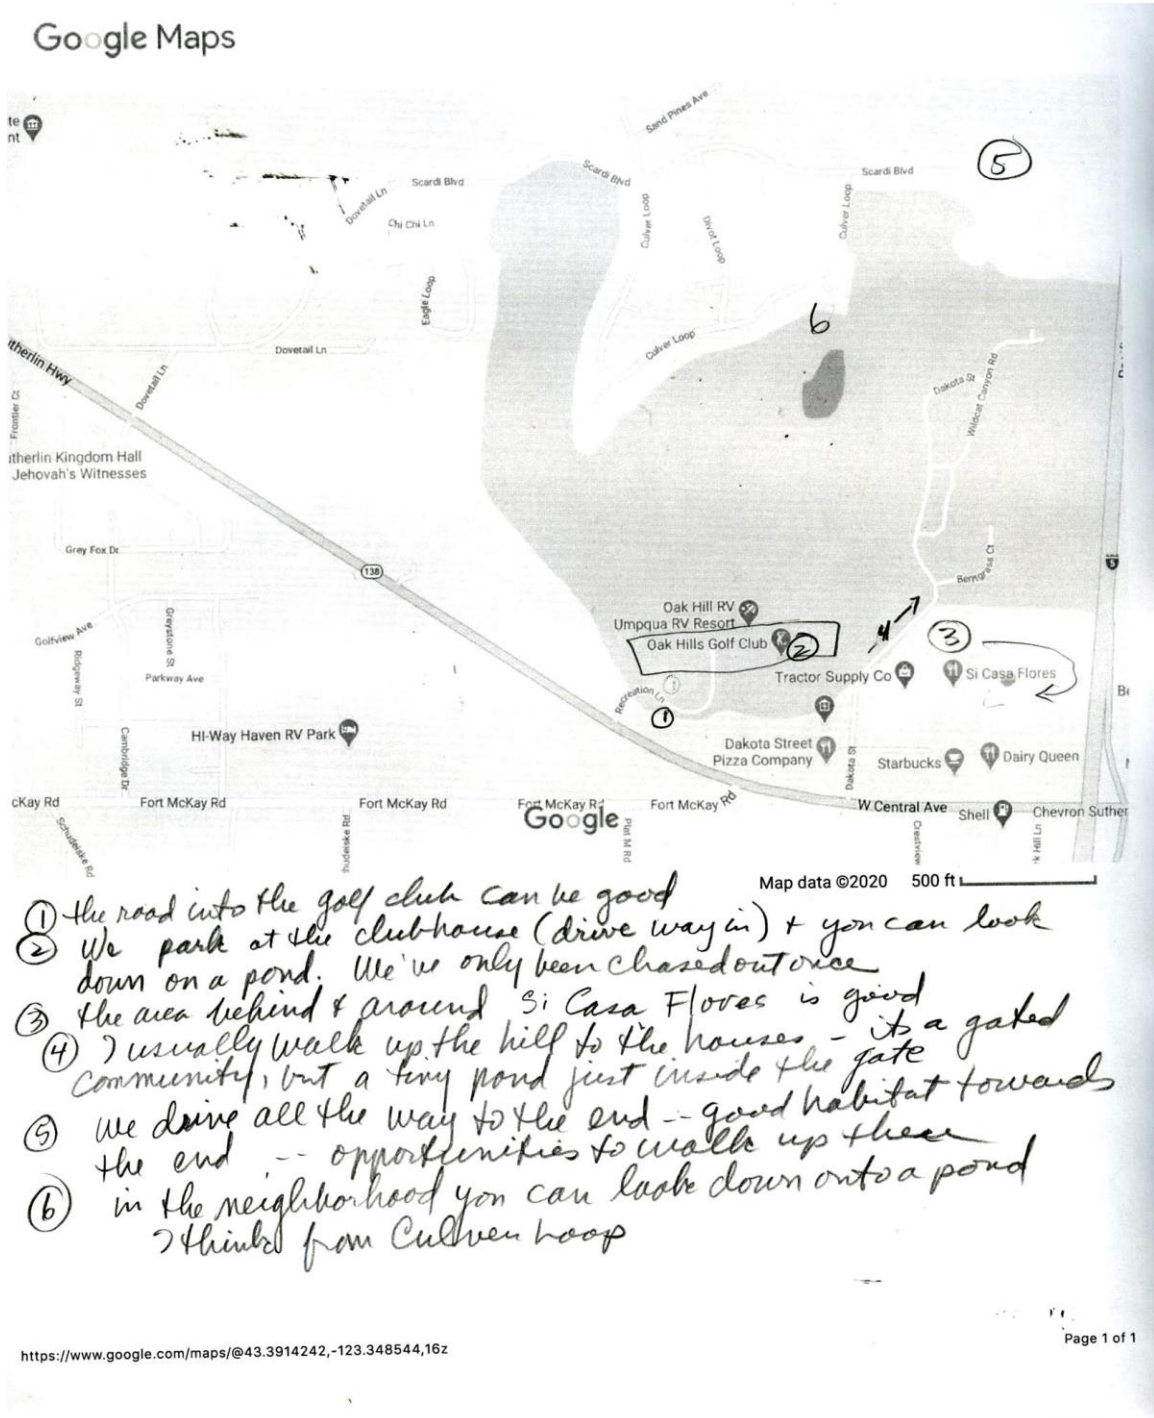 Google Maps
te
nt
Sand Pines Ave
5
Scardi Blvd
Scardi Blvd
Scardi Blvd
Dovetail Ln
Chi Chi Ln
Culver Loop
Divot Loop
Culver Loop
Eagle Loop
6
Culver Loop
Dovetail Ln
Dovetail Ln
therlin Hwy
Frontier Ct
Dakota St
Wildcat Canyon Rd
therlin Kingdom Hall
Jehovah's Witnesses
138
Grey Fox Dr
5
Oak Hill RV
Umpqua RV Resort
Oak Hills Golf Club
2
4
3
Golfview Ave
Greystone St
Ridgeway St
Parkway Ave
Tractor Supply Co
Si Casa Flores
Recreation Ln
1
HI-Way Haven RV Park
Cambridge Dr
Dakota Street
Pizza Company
Dakota St
Starbucks
Dairy Queen
cKay Rd
Fort McKay Rd
Fort McKay Rd
Fort McKay Rd
Fort McKay Rd
W Central Ave
Shell
Chevron Suther
Google
Schudeiske Rd
hudeiske Rd
Plat M Rd
Crestview
k Hill Ln
Map data ©2020 500 ft
1 the road into the golf club can be good
2 We park at the clubhouse (drive way in) + you can look
down on a pond. We've only been chased out once
3 the area behind & around Si Casa Flores is good
4 I usually walk up the hill to the houses - its a gated
community, but a tiny pond just inside the gate
5 we drive all the way to the end -- good habitat towards
the end -- opportunities to walk up there
6 in the neighborhood you can look down onto a pond
I think from Culver Loop
https://www.google.com/maps/@43.3914242,-123.348544,16z
Page 1 of 1